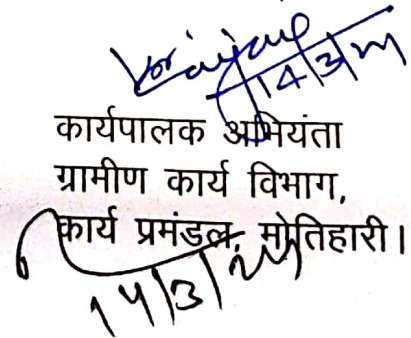 14/3/24
कार्यपालक अभियंता
ग्रामीण कार्य विभाग,
कार्य प्रमंडल, मोतिहारी।
14/3/24